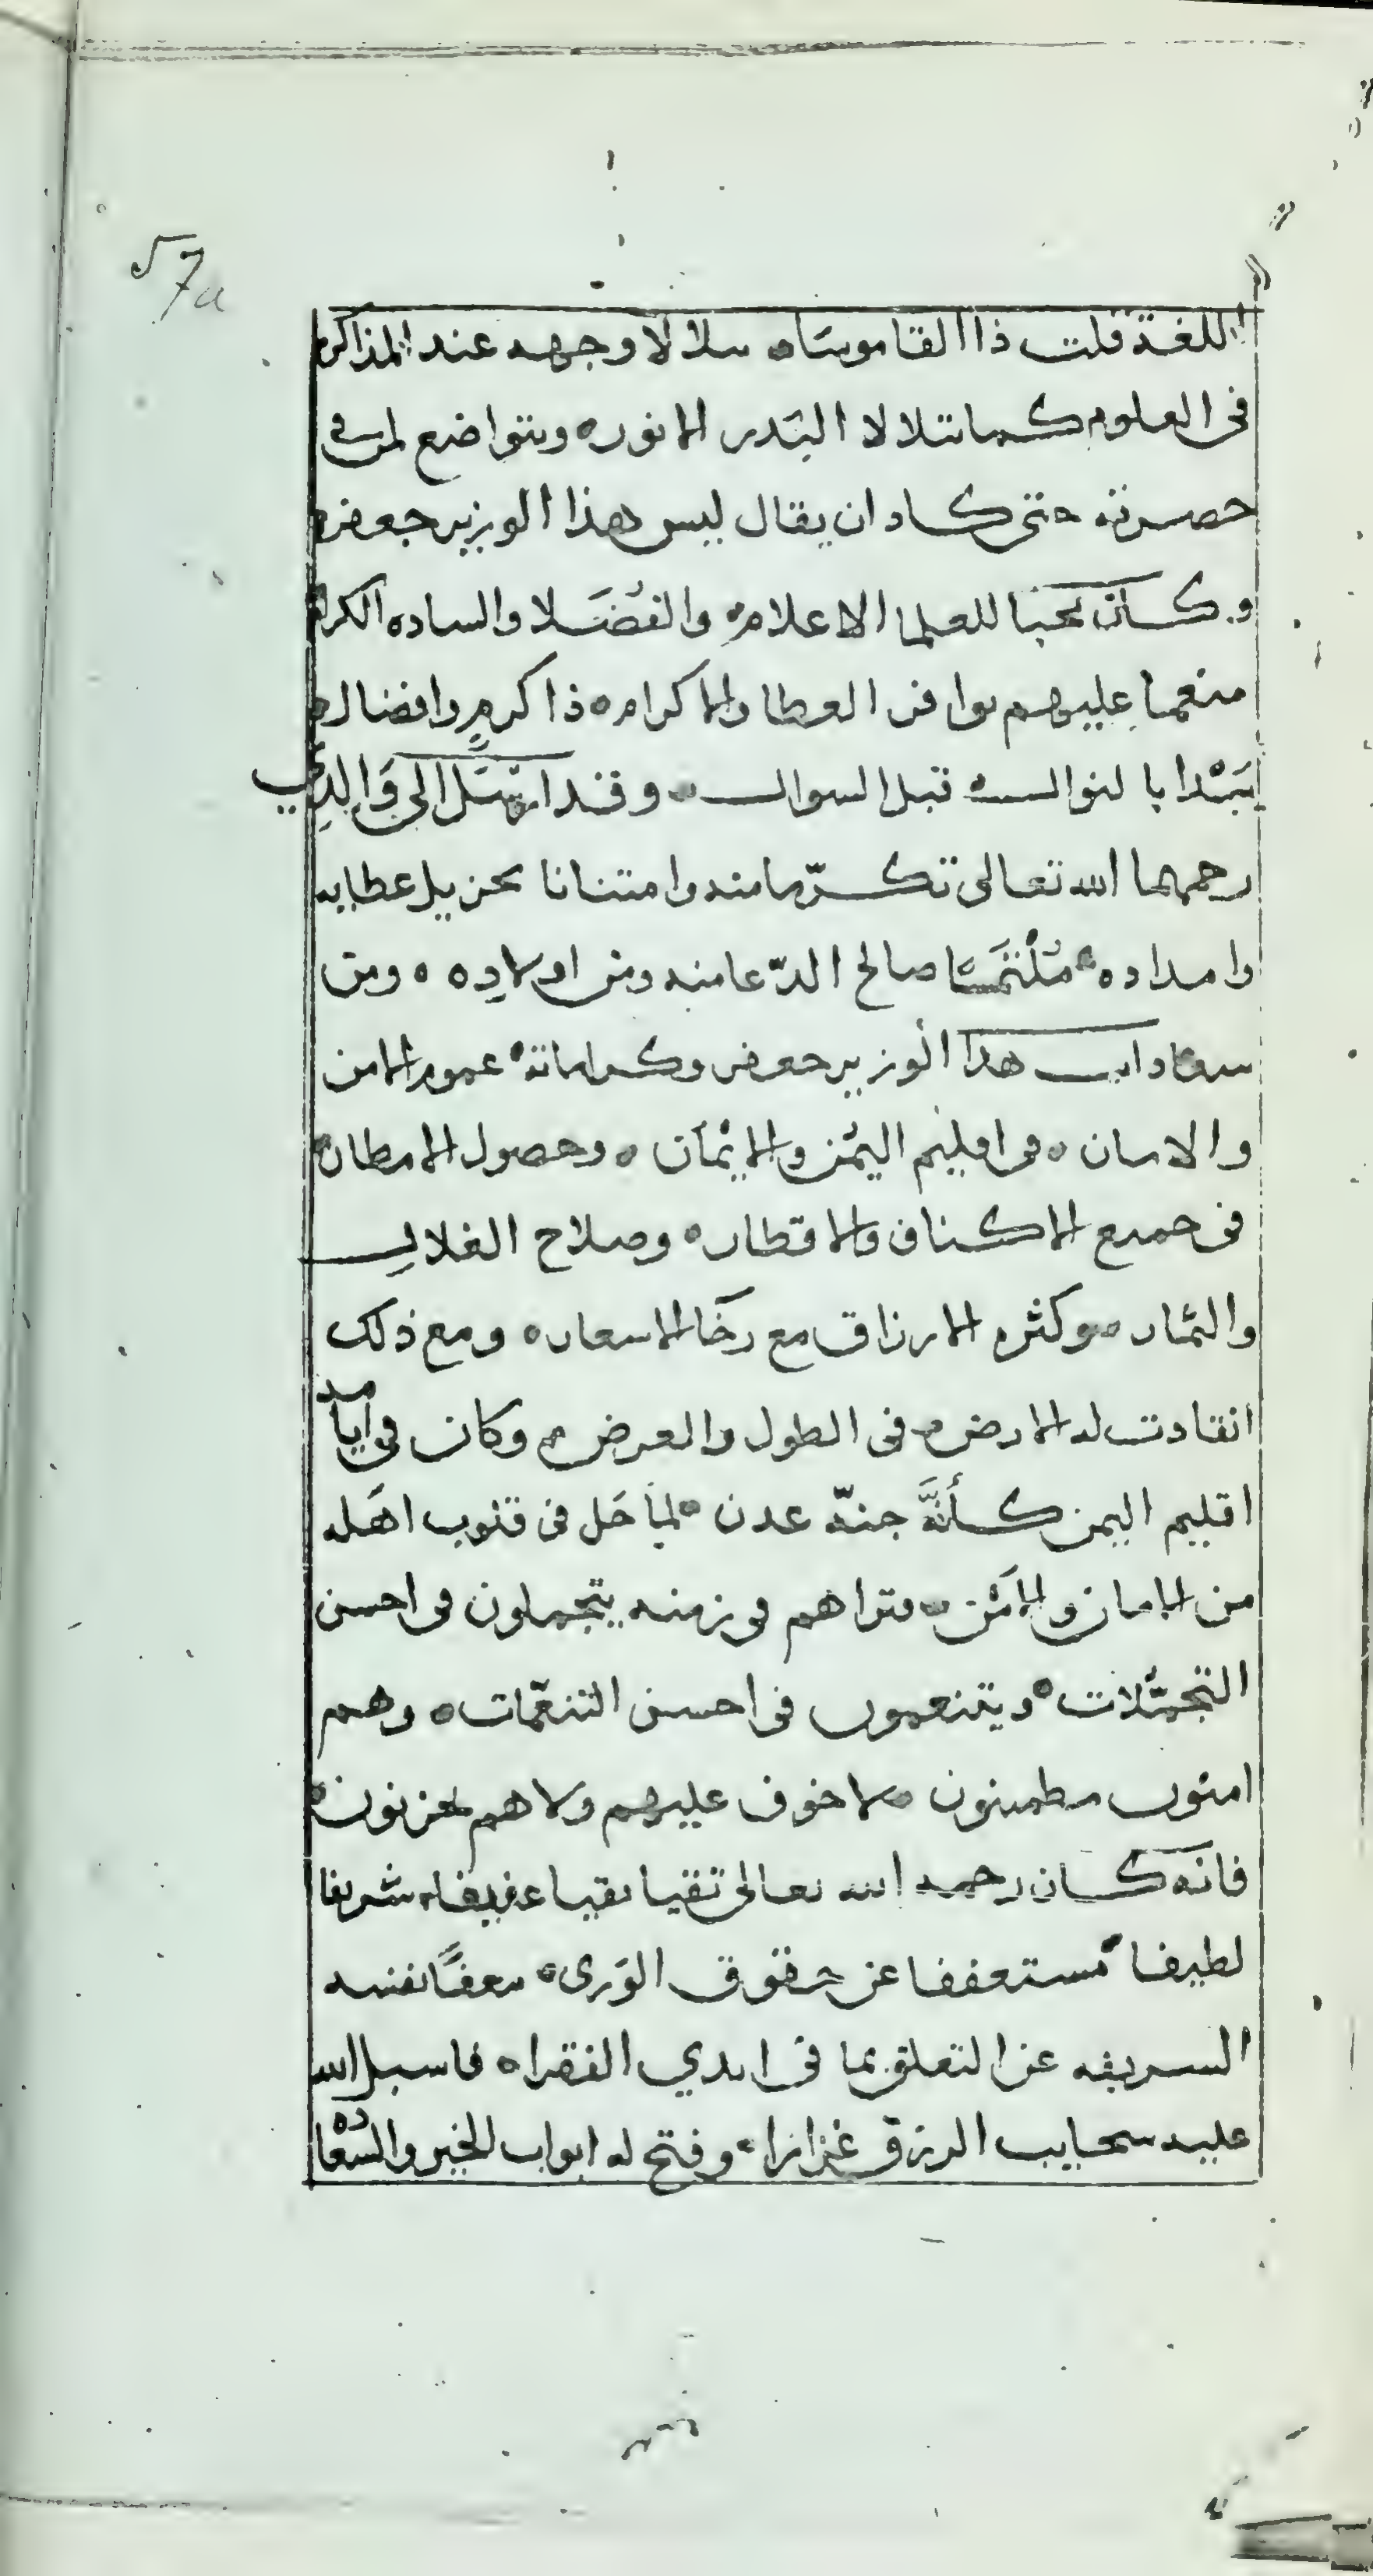 ٥٧a
اللغة قلت ذا القاموساه يتلالا وجهه عند المذاكره
فى العلوم كما يتلالا البدر الانوره ويتواضع لمن في
حضرته حتى كاد ان يقال ليس هذا الوزير جعفره
وكان محبا للعلما الاعلام والفضلا والساده الكرام
منعما عليهم بوافر العطا والاكرام ه ذا كرم وافضال ه
يبدا بالنوال ه قبل السوال ه وقد ارسل الى والدي
رحمهما الله تعالى تكرّما منه وامتنانا بجزيل عطايه
وامداده ملتمسا صالح الدّعا منه ومن اولادِه ه ومن
سعادات هذا الوزير جعفر وكراماته عموم الامن
والامان ه فى اقليم اليمن والايمان ه وحصول الامطاره
فى جميع الاكناف والاقطاره وصلاح الغلال
والثمار ه وكثره الارزاق مع رخا الاسعاره ومع ذلك
انقادت له الارض ه فى الطول والعرض ه وكان فى ايامه
اقليم اليمن كأنّه جنّة عدن ه لما حل فى قلوب اهله
من الامان والامن ه فتراهم فى زمنه يتجملون فى احسن
التجمّلات ه ويتنعمون فى احسن التنعّمات ه وهم
امنون مطمينون ه لا خوف عليهم ولا هم يحزنون ه
فانه كان رحمه الله تعالى تقيا نقيا عفيفا ه شريفا
لطيفا مستعففا عن حقوق الورى ه معفّا نفسه
الشريفه عن التعلق بما فى ايدي الفقراه فاسبل الله
عليه سحايب الرزق غزارا ه وفتح له ابواب الخير والسّعاده